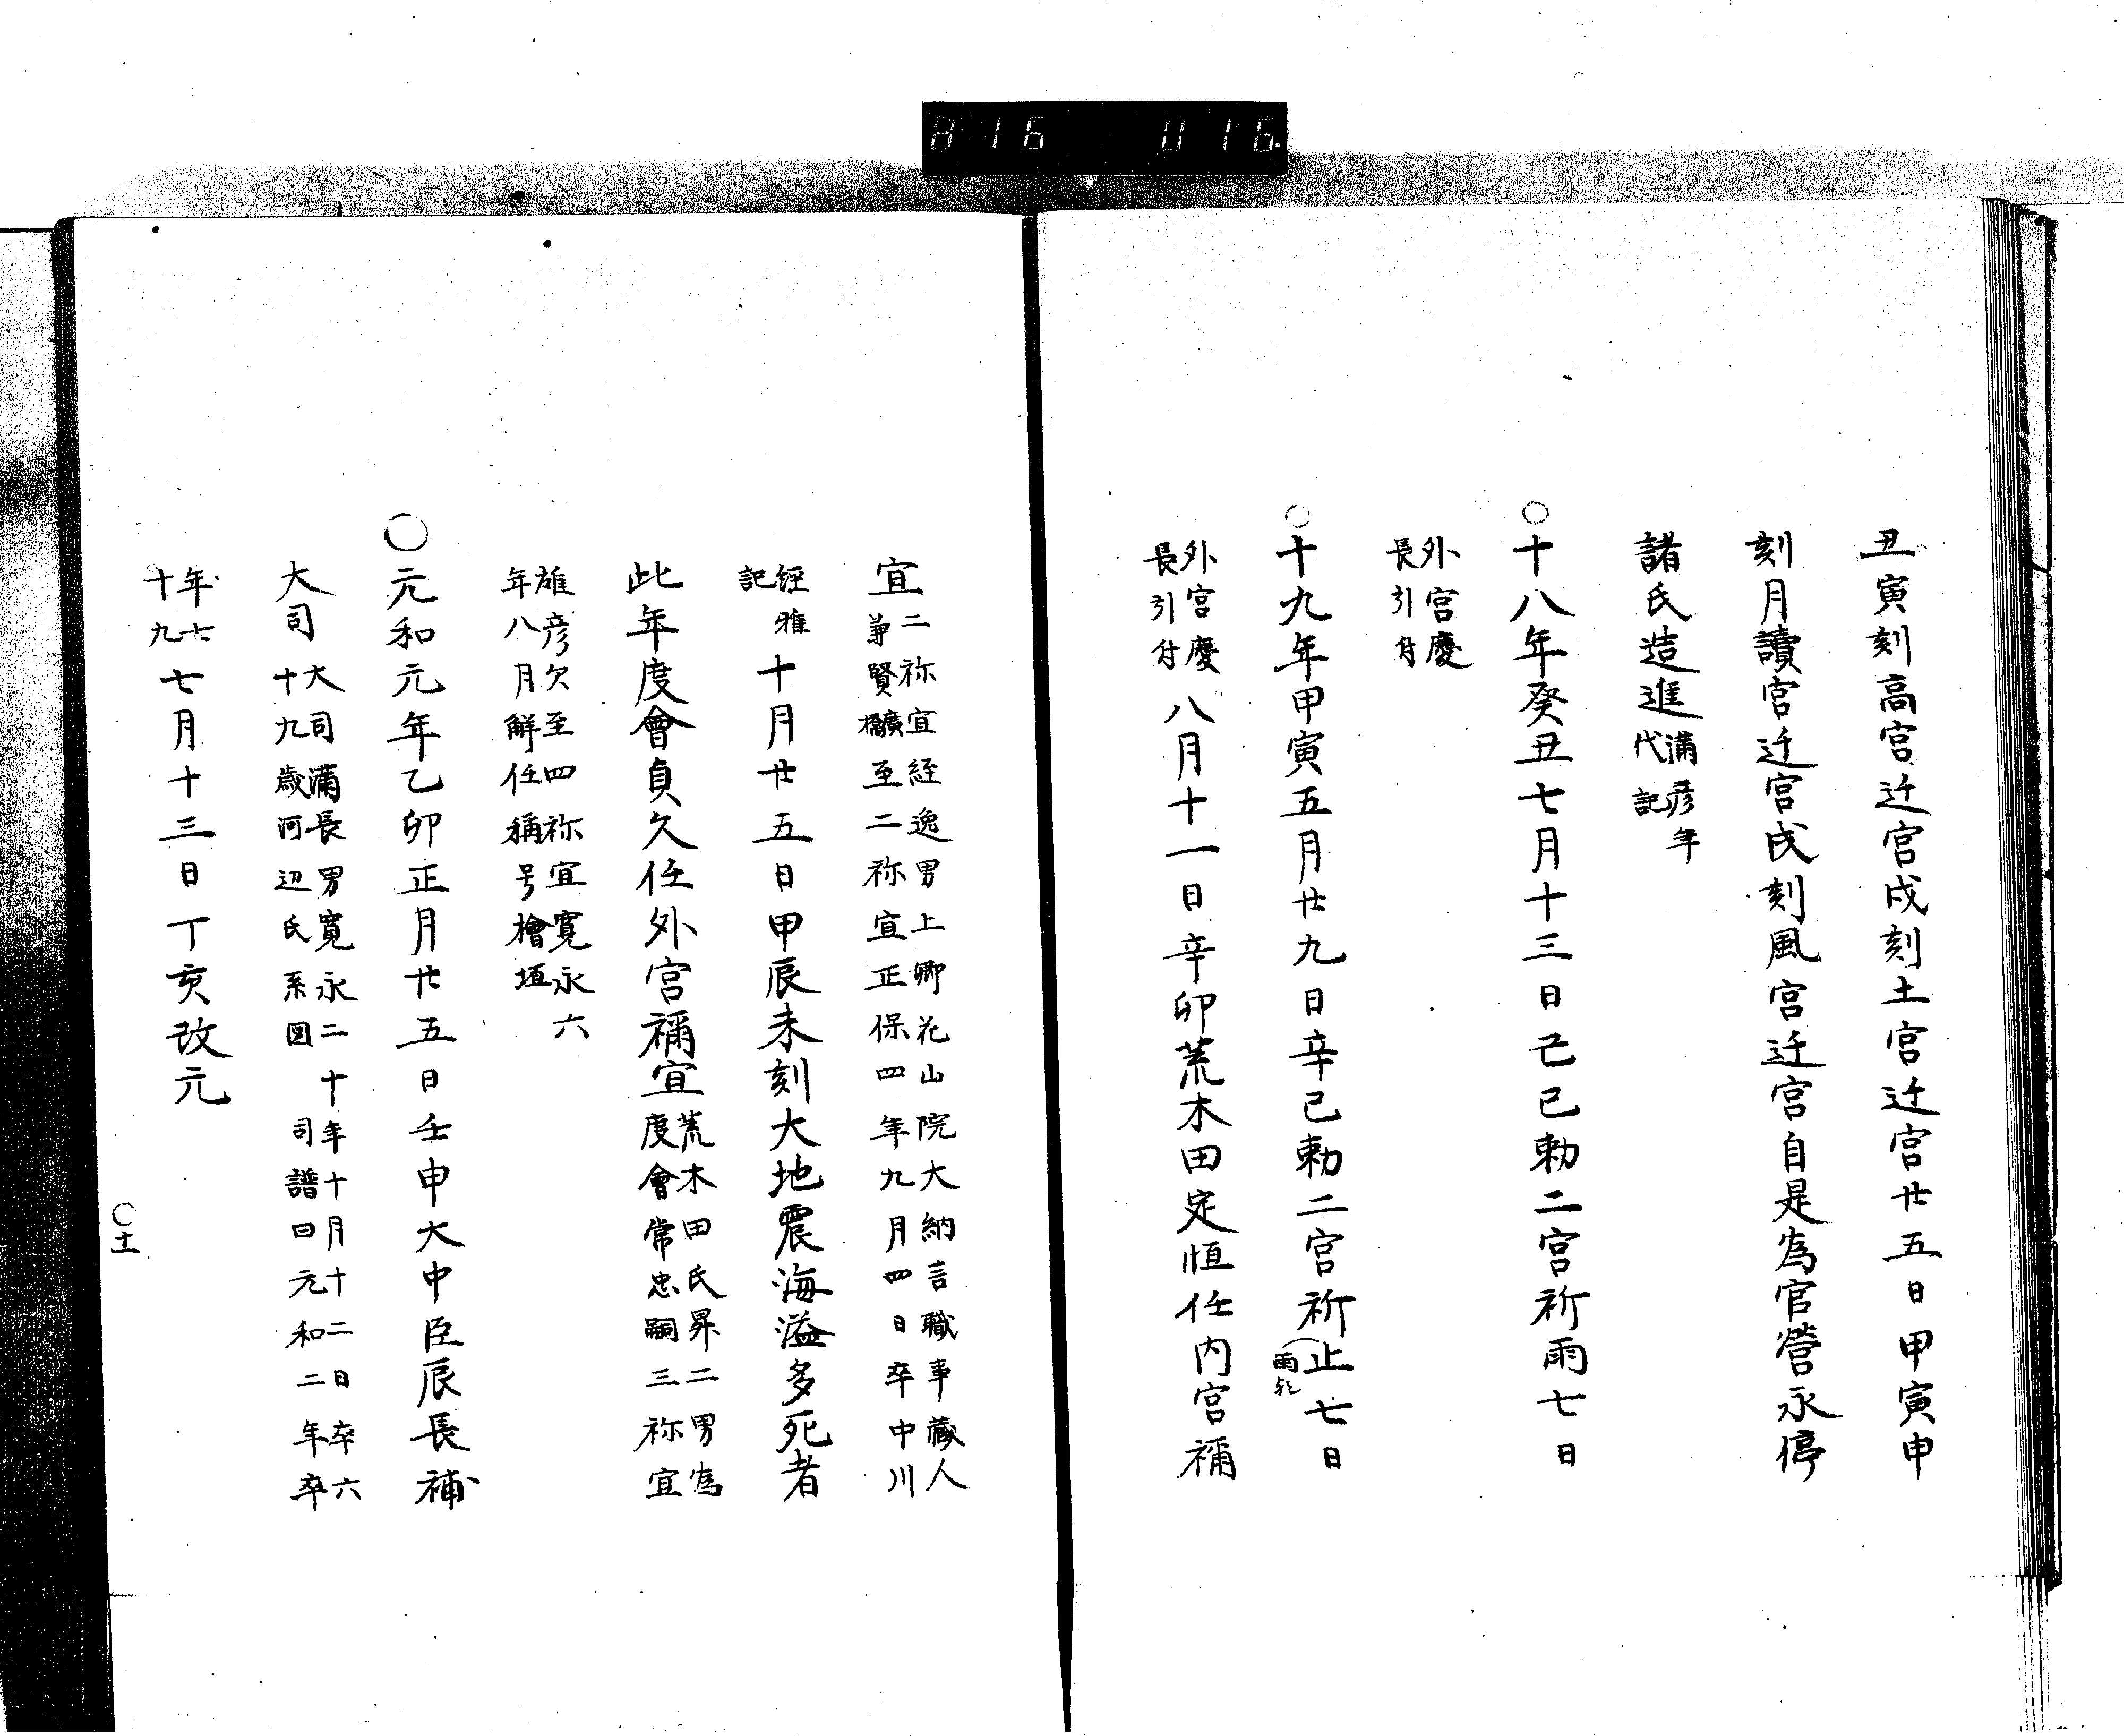 816 016
丑寅刻高宮迁宮戌刻土宮迁宮廿五日甲寅申
刻月讀宮迁宮戌刻風宮迁宮自是爲官營永停
諸氏造進
満彦年
代記
○十八年癸丑七月十三日己巳勅二宮祈雨七日
外宮慶
長引付
○十九年甲寅五月廿九日辛巳勅二宮祈止七日
雨乎
外宮慶
長引付
八月十一日辛卯荒木田定恒任内宮禰
宜
二祢宜経逸男上卿花山院大納言職事藏人
至二祢宜正保四年九月四日卒中川
経雅
記
十月廿五日甲辰未刻大地震海溢多死者
此年度會貞久任外宮禰宜
荒木田氏昇二男為
度會常忠嗣三祢宜
雄彦欠至四祢宜寛永六
年八月解任稱号檜垣
○元和元年乙卯正月廿五日壬申大中臣辰長補
大司
大司満長男寛永二十年十月十二日卒六
十九歳河辺氏系図 司譜曰元和二年卒
年六
十九
七月十三日丁亥改元
○十一